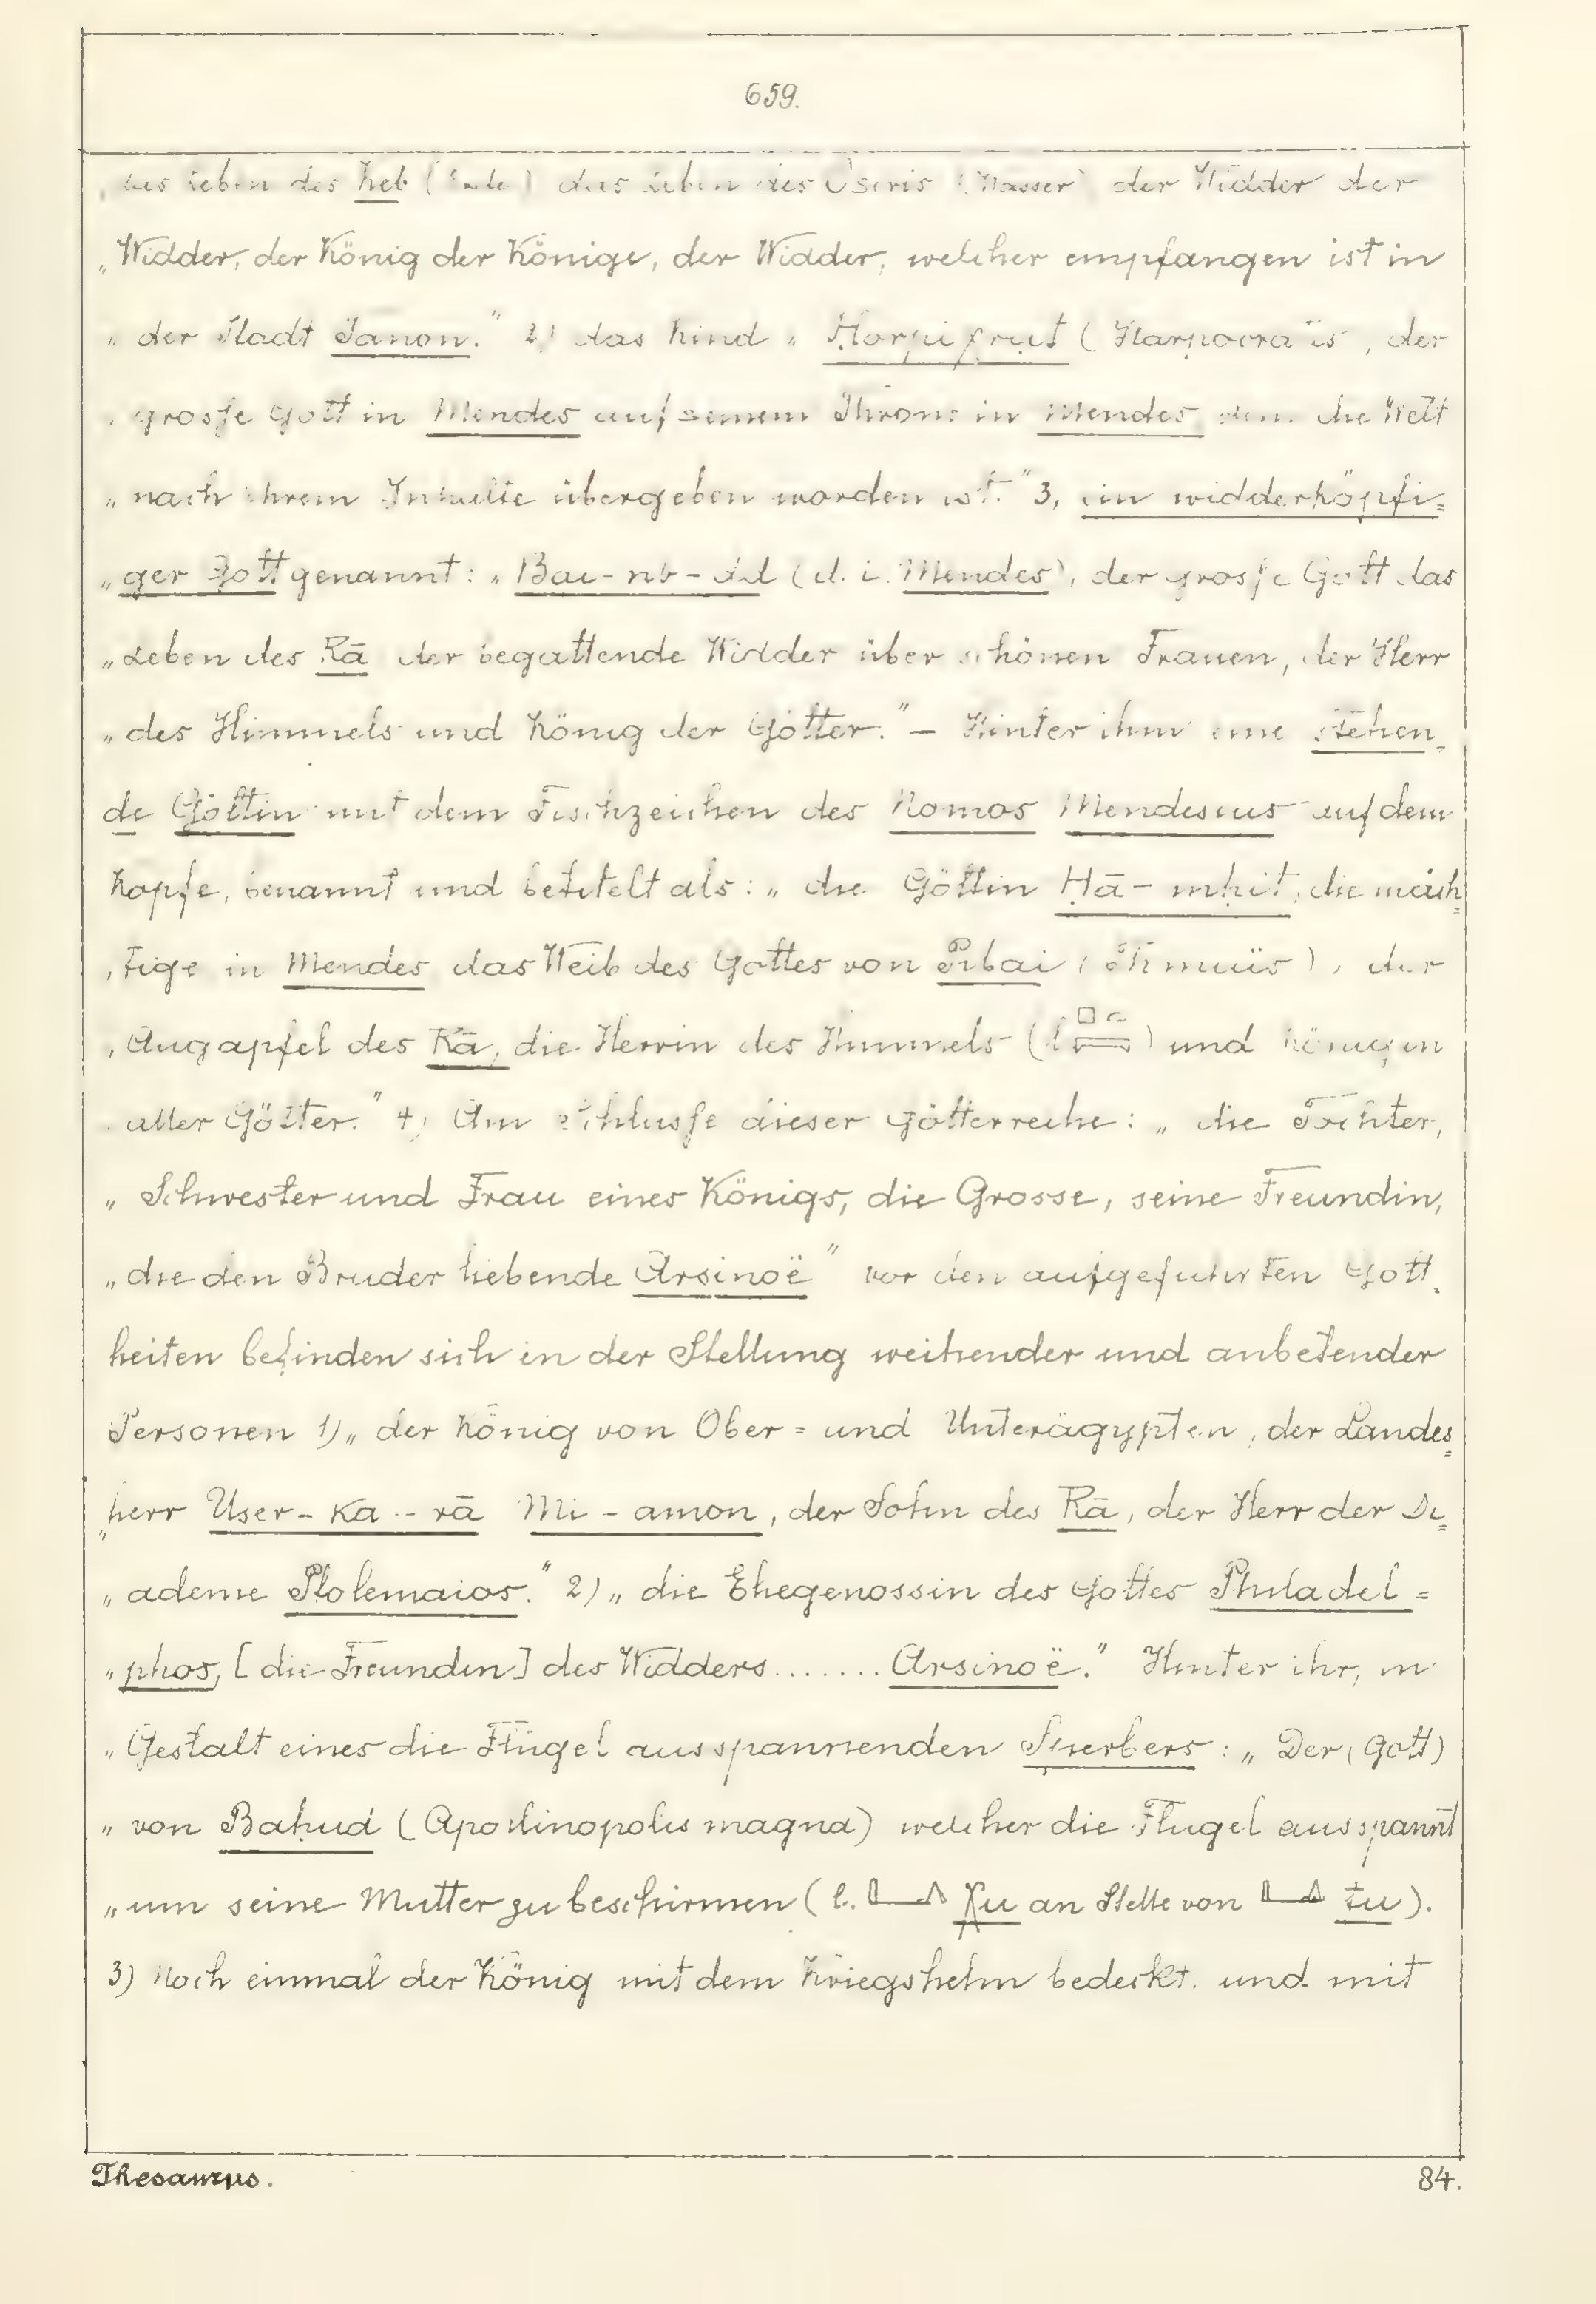 659.
„das Leben des Keb (Erde) das Leben des Osiris (Wasser) der Widder der
„Widder, der König der Könige, der Widder, welcher empfangen ist in
„der Stadt Tanon." 2) das Kind „Ḥorpiχruṭ (Harpocrates, der
„grosse Gott in Mendes auf seinem Throne in Mendes dem die Welt
„nach ihrem Inhalte übergeben worden ist." 3, ein widderköpfi=
„ger Gott genannt: „Bai-nb-dd (d. i. Mendes), der grosse Gott das
„Leben des Rā der begattende Widder über schönen Frauen, der Herr
„des Himmels und König der Götter." – Hinter ihm eine stehen=
de Göttin mit dem Fischzeichen des Nomos Mendesius auf dem
Kopfe, benannt und betitelt als: „die Göttin Ḥā-mḥit, die mäch=
„tige in Mendes das Weib des Gottes von (Thmuis), der
„Augapfel des Rā, die Herrin des Himmels () und Königin
„aller Götter." 4) Am Schlusse dieser Götterreihe: „die Tochter,
„Schwester und Frau eines Königs, die Grosse, seine Freundin,
„die den Bruder liebende Arsinoë" vor den aufgeführten Gott=
heiten befinden sich in der Stellung weihender und anbetender
Personen 1) „der König von Ober= und Unterägypten, der Landes=
„herr User-ka-rā Mi-amon, der Sohn des Rā, der Herr der Di=
„ademe Ptolemaios." 2) „die Ehegenossin des Gottes Philadel=
„phos, [die Freundin] des Widders ....... Arsinoë." Hinter ihr, in
„Gestalt eines die Flügel ausspannenden Sperbers: „Der (Gott)
„von Baḥud (Apollinopolis magna) welcher die Flügel ausspannt
„um seine Mutter zu beschirmen (l. χu an Stelle von ṭu).
3) Noch einmal der König mit dem Kriegshelm bedeckt und mit
Thesaurus.
84.